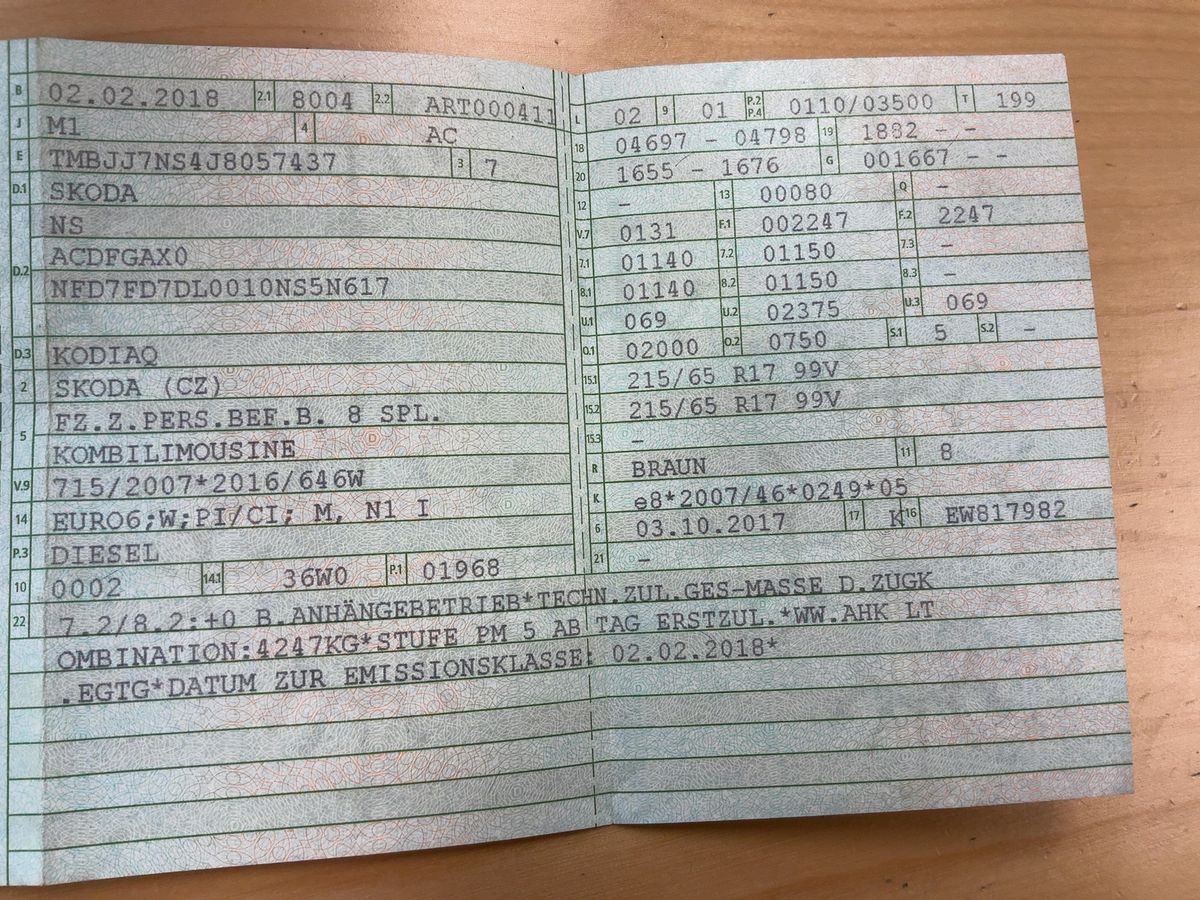 B 02.02.2018 2.1 8004 2.2 ART000411
J M1 4 AC
E TMBJJ7NS4J8057437 3 7
D.1 SKODA
NS
D.2 ACDFGAX0
NFD7FD7DL0010NS5N617
D.3 KODIAQ
2 SKODA (CZ)
5 FZ.Z.PERS.BEF.B. 8 SPL.
KOMBILIMOUSINE
V.9 715/2007*2016/646W
14 EURO6;W;PI/CI; M, N1 I
P.3 DIESEL
10 0002 14.1 36W0 P.1 01968
L 02 9 01 P.2 P.4 0110/03500 T 199
18 04697 - 04798 19 1882 - -
20 1655 - 1676 G 001667 - -
12 - 13 00080 Q -
V.7 0131 F.1 002247 F.2 2247
7.1 01140 7.2 01150 7.3 -
8.1 01140 8.2 01150 8.3 -
U.1 069 U.2 02375 U.3 069
O.1 02000 O.2 0750 S.1 5 S.2 -
15.1 215/65 R17 99V
15.2 215/65 R17 99V
15.3 -
R BRAUN 11 8
K e8*2007/46*0249*05
6 03.10.2017 17 K 16 EW817982
21 -
22 7.2/8.2:+0 B.ANHÄNGEBETRIEB*TECHN.ZUL.GES-MASSE D.ZUGK
OMBINATION:4247KG*STUFE PM 5 AB TAG ERSTZUL.*WW.AHK LT
.EGTG*DATUM ZUR EMISSIONSKLASSE: 02.02.2018*